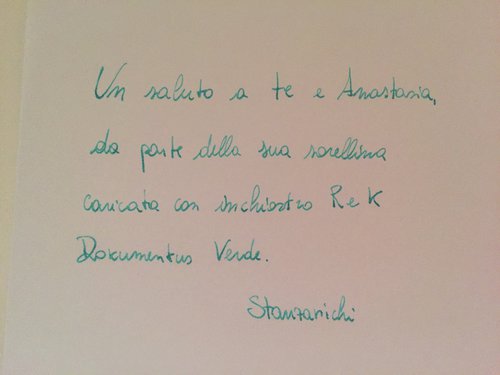 Un saluto a te e Anastasia,
da parte della sua sorellina
caricata con inchiostro R e K
Dokumentus Verde.
Stanzarichi